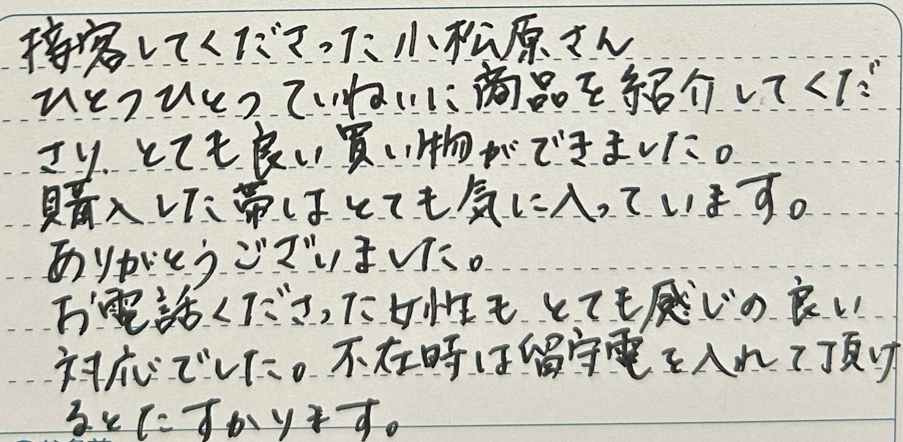 接客してくださった小松原さん
ひとつひとつていねいに商品を紹介してくだ
さり、とても良い買い物ができました。
購入した帯はとても気に入っています。
ありがとうございました。
お電話くださった女性も とても感じの良い
対応でした。不在時は留守電を入れて頂け
るとたすかります。